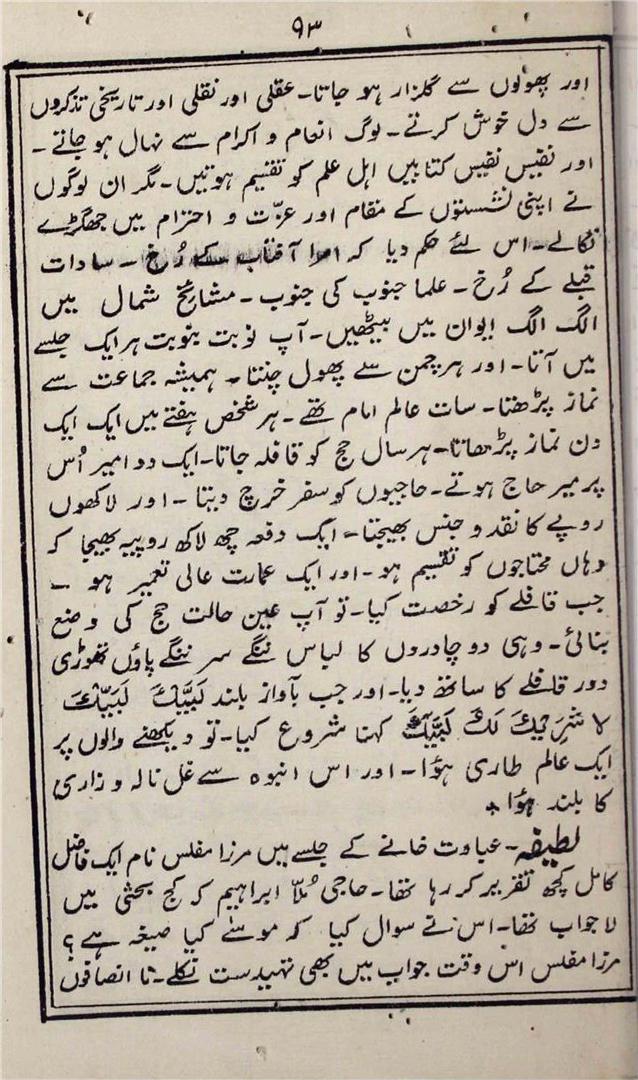 ۹۳
اور پھولوں سے گلزار ہو جاتا۔ عقلی اور نقلی اور تاریخی تذکروں
سے دل خوش کرتے۔ لوگ انعام و اکرام سے نہال ہو جاتے۔
اور نفیس نفیس کتابیں اہل علم کو تقسیم ہوتیں۔ مگر ان لوگوں
نے اپنی نشستوں کے مقام اور عزّت و احترام میں جھگڑے
نکالے۔ اس لئے حکم دیا کہ امرا آفتاب کے رُخ ۔ سادات
قبلے کے رُخ ۔ علما جنوب کی جنوب ۔ مشایخ شمال میں
الگ الگ ایوان میں بیٹھیں۔ آپ نوبت بنوبت ہر ایک جلسے
میں آتا۔ اور ہر چمن سے پھول چنتا ۔ ہمیشہ جماعت سے
نماز پڑھتا۔ سات عالم امام تھے ۔ ہر شخص ہفتے میں ایک ایک
دن نماز پڑھاتا۔ ہر سال حج کو قافلہ جاتا۔ ایک دو امیر اُس
پر میر حاج ہوتے۔ حاجیوں کو سفر خرچ دیتا ۔ اور لاکھوں
روپے کا نقد و جنس بھیجتا۔ ایک دفعہ چھ لاکھ روپیہ بھیجا کہ
وہاں محتاجوں کو تقسیم ہو۔ اور ایک عمارت عالی تعمیر ہو ۔
جب قافلے کو رخصت کیا۔ تو آپ عین حالت حج کی وضع
بنائی۔ وہی دو چادروں کا لباس ننگے سر ننگے پاؤں تھوڑی
دور قافلے کا ساتھ دیا۔ اور جب بآواز بلند لَبَیَّکَ لَبَیَّکَ
لَا شَرِیْکَ لَکَ لَبَیَّکَ کہنا شروع کیا۔ تو دیکھنے والوں پر
ایک عالم طاری ہؤا۔ اور اس انبوہ سے غل نالہ و زاری
کا بلند ہؤا ۔
لطیفہ۔ عبادت خانے کے جلسے میں مرزا مفلس نام ایک فاضل
کامل کچھ تقریر کر رہا تھا۔ حاجی مُلّا ابراہیم کہ کج بحثی میں
لا جواب تھا۔ اس نے سوال کیا کہ موسٰے کیا صیغہ ہے؟
مرزا مفلس اس وقت جواب میں بھی تہیدست نکلے۔ نا انصافوں